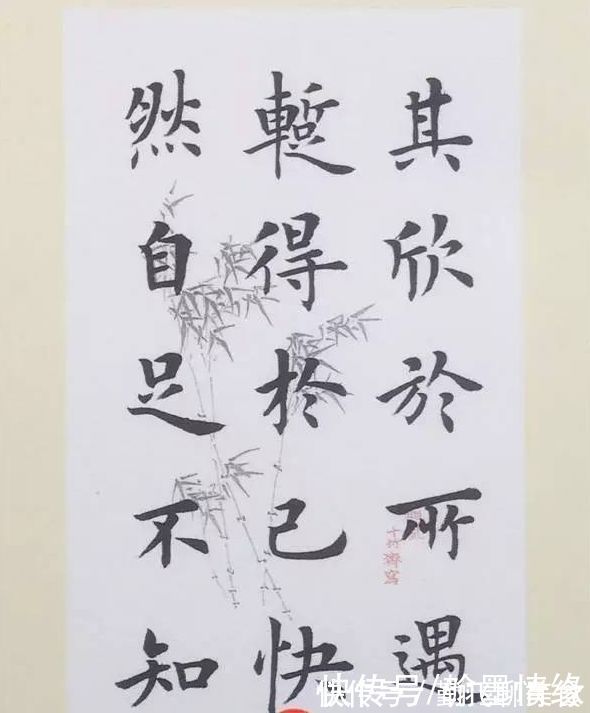 其欣於所遇
暫得於己快
然自足不知
十竹齋寫
快传号/